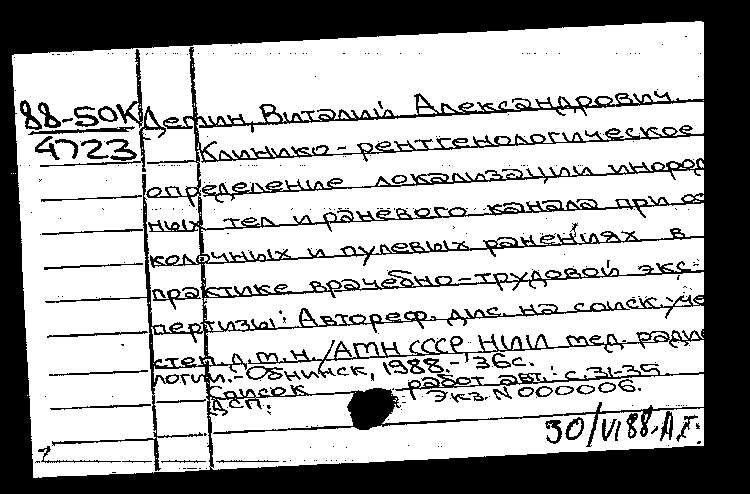 88-50К Демин, Виталий Александрович.
4723 Клинико-рентгенологическое
определение локализации инород
ных тел и раневого канала при ос
колочных и пулевых ранениях в
практике врачебно-трудовой экс-
пертизы: Автореф. дис. на соиск. уче
степ. д.м.н. /АМН СССР НИИ мед. радио
логии.- Обнинск, 1988.- 36с.
Список работ авт.: с.31-35.
ДСП. Экз. N 000006.
30/VI 88. А.Г.